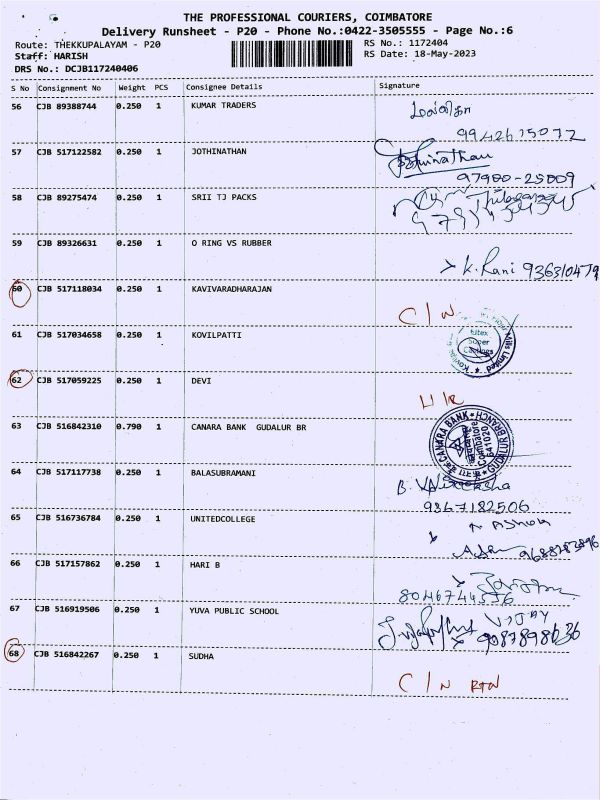 THE PROFESSIONAL COURIERS, COIMBATORE
Delivery Runsheet - P20 - Phone No.:0422-3505555 - Page No.:6
Route: THEKKUPALAYAM - P20 RS No.: 1172404
Staff: HARISH RS Date: 18-May-2023
DRS No.: DCJB117240406
S No Consignment No Weight PCS Consignee Details Signature
56 CJB 89388744 0.250 1 KUMAR TRADERS
9942615072
57 CJB 517122582 0.250 1 JOTHINATHAN
97900-25009
58 CJB 89275474 0.250 1 SRII TJ PACKS
59 CJB 89326631 0.250 1 O RING VS RUBBER
K. Rani 936310479
60 CJB 517118034 0.250 1 KAVIVARADHARAJAN
C/N
61 CJB 517034658 0.250 1 KOVILPATTI
Super
Mills Limited
62 CJB 517059225 0.250 1 DEVI
63 CJB 516842310 0.790 1 CANARA BANK GUDALUR BR
CANARA BANK GUDALUR BRANCH
Coimbatore
641020
64 CJB 517117738 0.250 1 BALASUBRAMANI
9367182506
65 CJB 516736784 0.250 1 UNITEDCOLLEGE
ASHOK
66 CJB 517157862 0.250 1 HARI B
8046744556
67 CJB 516919506 0.250 1 YUVA PUBLIC SCHOOL
VIJAY
68 CJB 516842267 0.250 1 SUDHA
C/N RTN